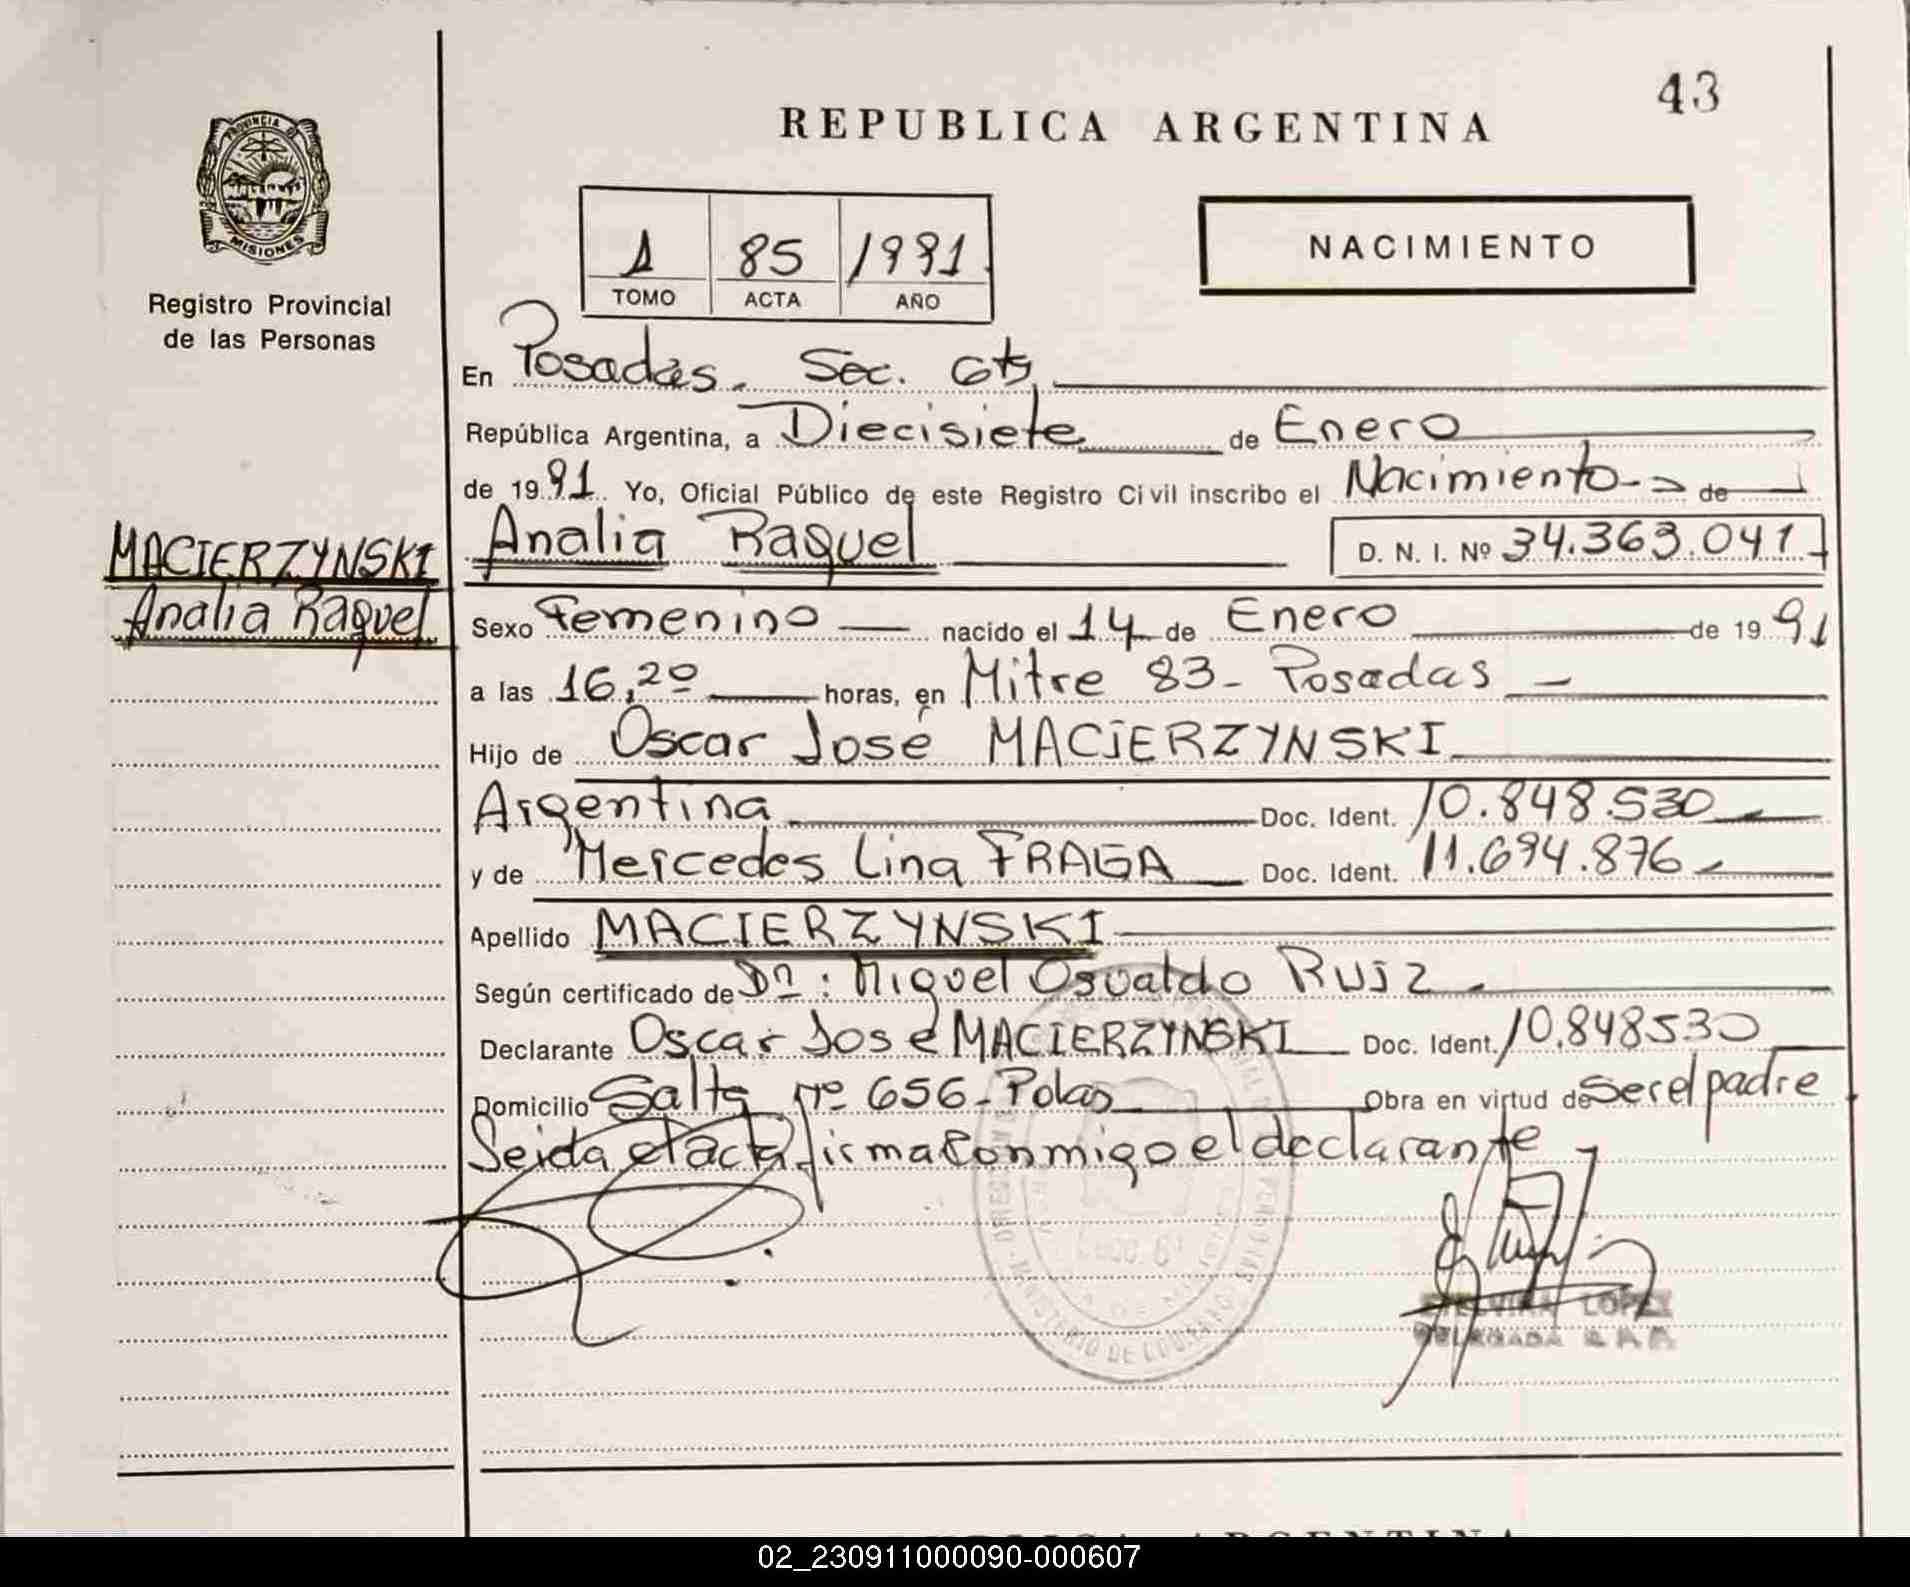 43
REPUBLICA ARGENTINA
PROVINCIA DE
MISIONES
Registro Provincial
de las Personas
1 85 1991
TOMO ACTA AÑO
NACIMIENTO
En Posadas. Sec. 6ta
República Argentina, a Diecisiete de Enero
de 1991. Yo, Oficial Público de este Registro Civil inscribo el Nacimiento - de
MACIERZYNSKI
Analia Raquel
Analia Raquel D. N. I. Nº 34.363.041
Sexo Femenino nacido el 14 de Enero de 1991
a las 16,20 horas, en Mitre 83 - Posadas -
Hijo de Oscar José MACIERZYNSKI
Argentina Doc. Ident. 10.848.530
y de Mercedes Lina FRAGA Doc. Ident. 11.694.876
Apellido MACIERZYNSKI
Según certificado de Dn: Miguel Osvaldo RUIZ.
Declarante Oscar José MACIERZYNSKI Doc. Ident. 10.848530
Domicilio Salta nº 656 - Pdas Obra en virtud de ser el padre
Leida el acta firma conmigo el declarante
LOPEZ
DELEGADA
REPUBLICA ARGENTINA
02_230911000090-000607